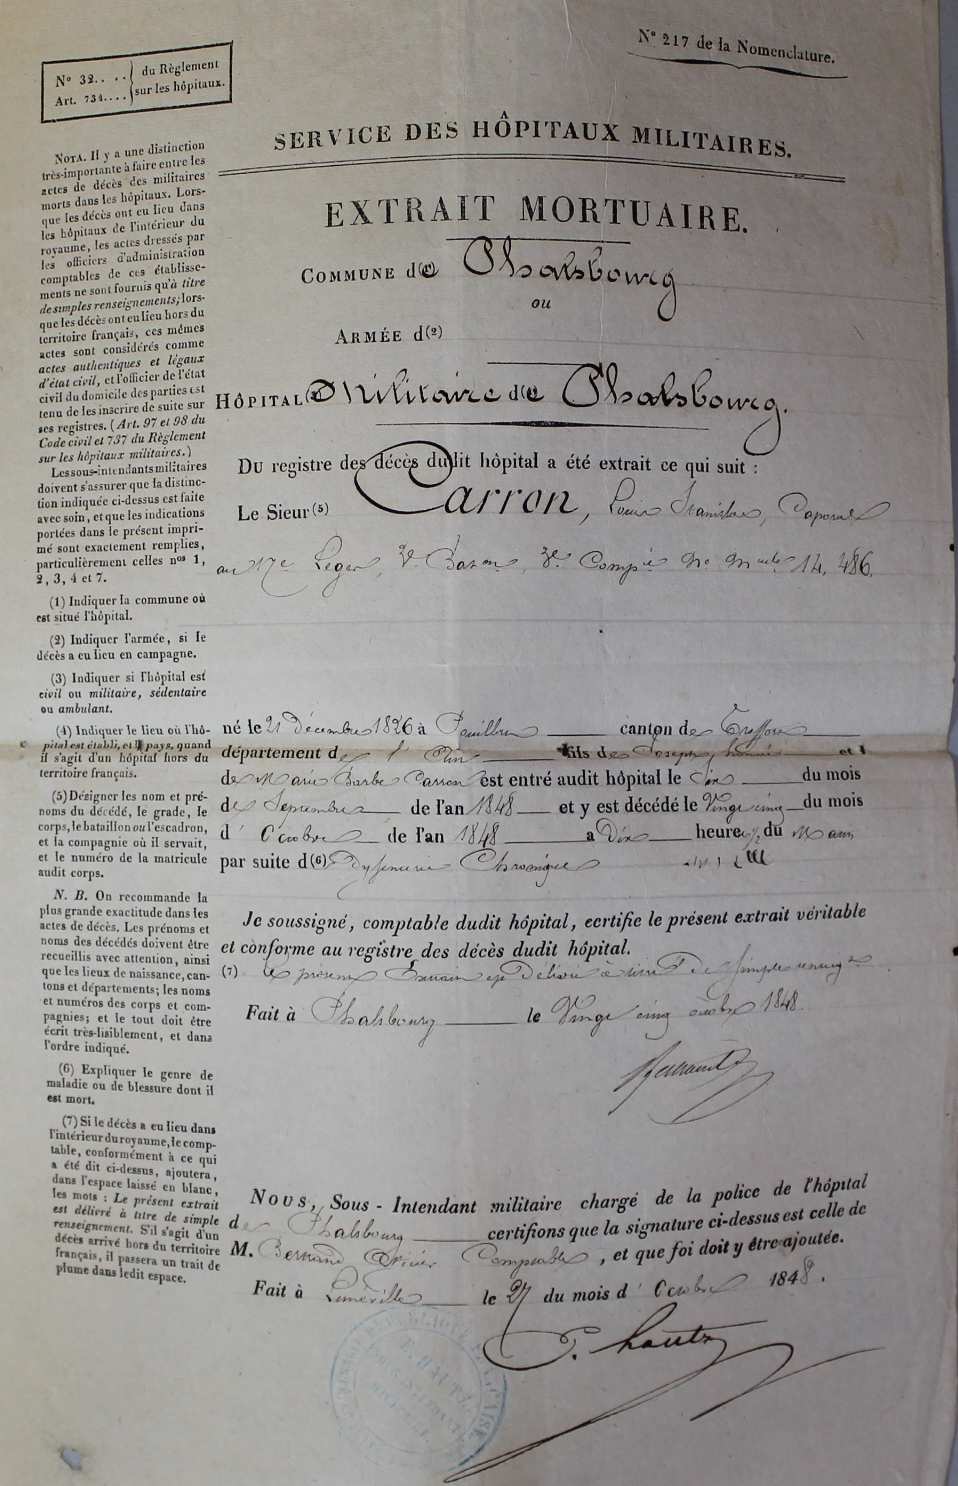 N° 32.... du Règlement
Art. 734.... sur les hôpitaux.
N° 217 de la Nomenclature.
SERVICE DES HÔPITAUX MILITAIRES.
EXTRAIT MORTUAIRE.
COMMUNE de Phalsbourg
ou
ARMÉE d(2)
HÔPITAL Militaire de Phalsbourg.
DU registre des décès dudit hôpital a été extrait ce qui suit :
Le Sieur (5) Carron, Louis Stanislas, Caporal
au 17e Léger, 2e Baton, 3e Compie No Mule 14,486.
né le 21 Décembre 1826 à canton de Treffort
département de l'Ain fils de Joseph et
de Marie Barbe Carron est entré audit hôpital le Six du mois
de Septembre de l'an 1848 et y est décédé le Vingt cinq du mois
d'Octobre de l'an 1848 a Dix heures du Matin
par suite d(6) Dyssenterie Chronique
Je soussigné, comptable dudit hôpital, certifie le présent extrait véritable
et conforme au registre des décès dudit hôpital.
(7) Le présent Extrait est Délivré à titre de simple renseigt
Fait à Phalsbourg le Vingt cinq octobre 1848.
NOUS, Sous-Intendant militaire chargé de la police de l'hôpital
de Phalsbourg certifions que la signature ci-dessus est celle de
M. Bernand Officier Comptable, et que foi doit y être ajoutée.
Fait à Lunéville le 27 du mois d'Octobre 1848.
NOTA. Il y a une distinction
très-importante à faire entre les
actes de décès des militaires
morts dans les hôpitaux. Lors-
que les décès ont eu lieu dans
les hôpitaux de l'intérieur du
royaume, les actes dressés par
les officiers d'administration
comptables de ces établisse-
ments ne sont fournis qu'à titre
de simples renseignements; lors-
que les décès ont eu lieu hors du
territoire français, ces mêmes
actes sont considérés comme
actes authentiques et légaux
d'état civil, et l'officier de l'état
civil du domicile des parties est
tenu de les inscrire de suite sur
ses registres. (Art. 97 et 98 du
Code civil et 737 du Règlement
sur les hôpitaux militaires.)
Les sous-intendants militaires
doivent s'assurer que la distinc-
tion indiquée ci-dessus est faite
avec soin, et que les indications
portées dans le présent impri-
mé sont exactement remplies,
particulièrement celles nos 1,
2, 3, 4 et 7.
(1) Indiquer la commune où
est situé l'hôpital.
(2) Indiquer l'armée, si le
décès a eu lieu en campagne.
(3) Indiquer si l'hôpital est
civil ou militaire, sédentaire
ou ambulant.
(4) Indiquer le lieu où l'hô-
pital est établi, et le pays, quand
il s'agit d'un hôpital hors du
territoire français.
(5) Désigner les nom et pré-
noms du décédé, le grade, le
corps, le bataillon ou l'escadron,
et la compagnie où il servait,
et le numéro de la matricule
audit corps.
N. B. On recommande la
plus grande exactitude dans les
actes de décès. Les prénoms et
noms des décédés doivent être
recueillis avec attention, ainsi
que les lieux de naissance, can-
tons et départements; les noms
et numéros des corps et com-
pagnies; et le tout doit être
écrit très-lisiblement, et dans
l'ordre indiqué.
(6) Expliquer le genre de
maladie ou de blessure dont il
est mort.
(7) Si le décès a eu lieu dans
l'intérieur du royaume, le comp-
table, conformément à ce qui
a été dit ci-dessus, ajoutera,
dans l'espace laissé en blanc,
les mots : Le présent extrait
est délivré à titre de simple
renseignement. S'il s'agit d'un
décès arrivé hors du territoire
français, il passera un trait de
plume dans ledit espace.